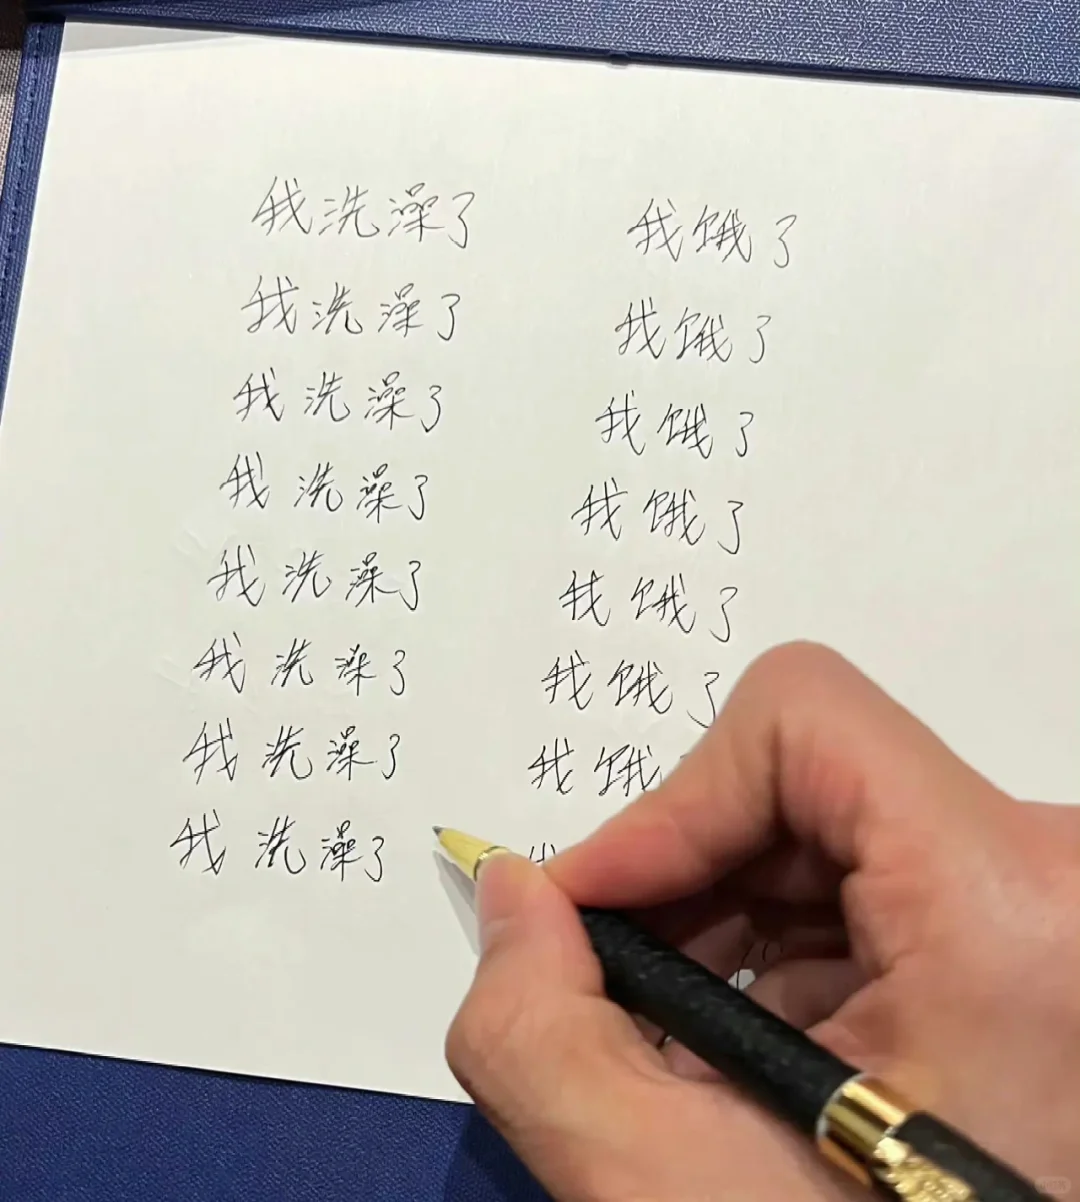 我洗澡了
我洗澡了
我洗澡了
我洗澡了
我洗澡了
我洗澡了
我洗澡了
我洗澡了
我饿了
我饿了
我饿了
我饿了
我饿了
我饿了
我饿